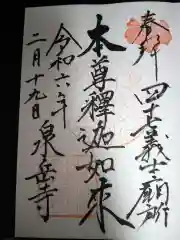 奉拝 四十七義士霊願所
本尊釋迦如来
令和六年
二月十九日 泉岳寺